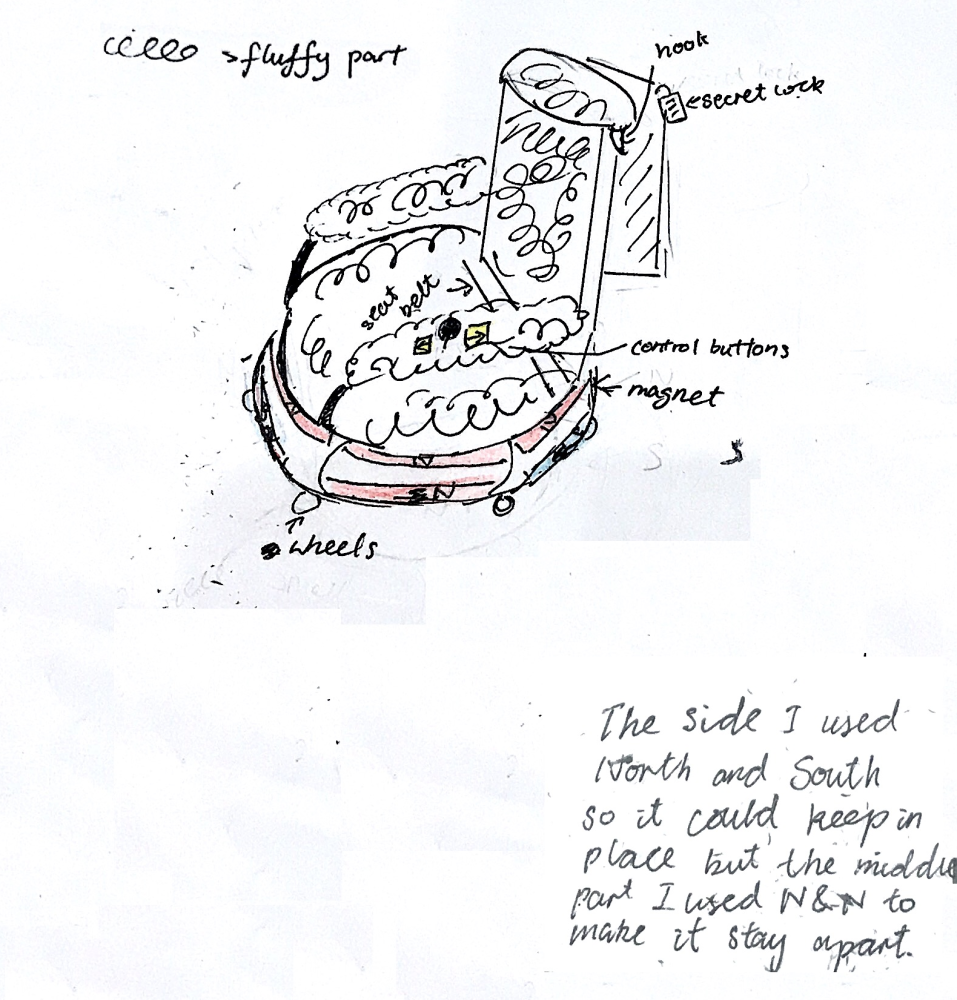 fluffy part
hook
secret lock
seat
belt
control buttons
magnet
N
N
S
S
wheels
The side I used
North and South
so it could keep in
place but the middle
part I used N&N to
make it stay apart.